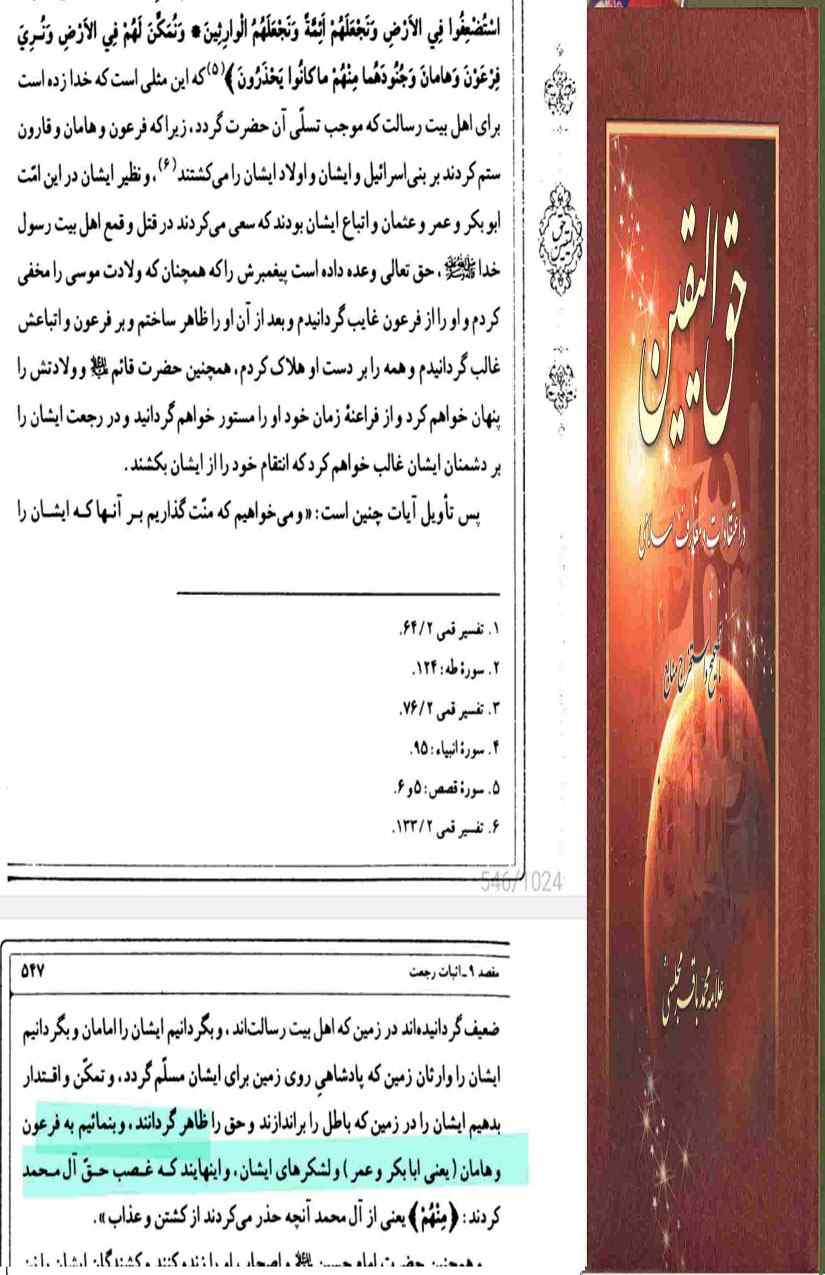 اسْتُضْعِفُوا فِي الأَرْضِ وَنَجْعَلَهُمْ أَئِمَّةً وَنَجْعَلَهُمُ الْوارِثِينَ * وَنُمَكِّنَ لَهُمْ فِي الأَرْضِ وَنُرِيَ
فِرْعَوْنَ وَهامانَ وَجُنُودَهُما مِنْهُمْ ماكانُوا يَحْذَرُونَ﴾(۵) که این مثلی است که خدا زده است
برای اهل بیت رسالت که موجب تسلّی آن حضرت گردد، زیرا که فرعون و هامان و قارون
ستم کردند بر بنی‌اسرائیل و ایشان و اولاد ایشان را می‌کشتند(۶)، و نظیر ایشان در این امّت
ابو بکر و عمر و عثمان و اتباع ایشان بودند که سعی می‌کردند در قتل و قمع اهل بیت رسول
خدا ﷺ، حق تعالی وعده داده است پیغمبرش را که همچنان که ولادت موسی را مخفی
کردم و او را از فرعون غایب گردانیدم و بعد از آن او را ظاهر ساختم و بر فرعون و اتباعش
غالب گردانیدم و همه را بر دست او هلاک کردم، همچنین حضرت قائم ﷷ و ولادتش را
پنهان خواهم کرد و از فراعنهٔ زمان خود او را مستور خواهم گردانید و در رجعت ایشان را
بر دشمنان ایشان غالب خواهم کرد که انتقام خود را از ایشان بکشند.
پس تأویل آیات چنین است: «و می‌خواهیم که منّت گذاریم بر آنها که ایشان را
۱. تفسیر قمی ۶۴/۲.
۲. سورهٔ طه: ۱۲۴.
۳. تفسیر قمی ۷۶/۲.
۴. سورهٔ انبیاء: ۹۵.
۵. سورهٔ قصص: ۵ و ۶.
۶. تفسیر قمی ۱۳۳/۲.
546/1024
مقصد ۹ ـ اثبات رجعت ۵۴۷
ضعیف گردانیده‌اند در زمین که اهل بیت رسالت‌اند، و بگردانیم ایشان را امامان و بگردانیم
ایشان را وارثان زمین که پادشاهی روی زمین برای ایشان مسلّم گردد، و تمکّن و اقتدار
بدهیم ایشان را در زمین که باطل را براندازند و حق را ظاهر گردانند، و بنمائیم به فرعون
و هامان (یعنی ابا بکر و عمر) و لشکرهای ایشان، و اینهایند که غصب حقّ آل محمد
کردند: ﴿مِنْهُمْ﴾ یعنی از آل محمد آنچه حذر می‌کردند از کشتن و عذاب».
و همچنین حضرت امام حسین ﷷ و اصحاب او را زنده کنند و کشندگان ایشان را نیز
حق الیقین
حق الیقین
در اعتقادات و معارف اسلامی
علامه محمد باقر مجلسی